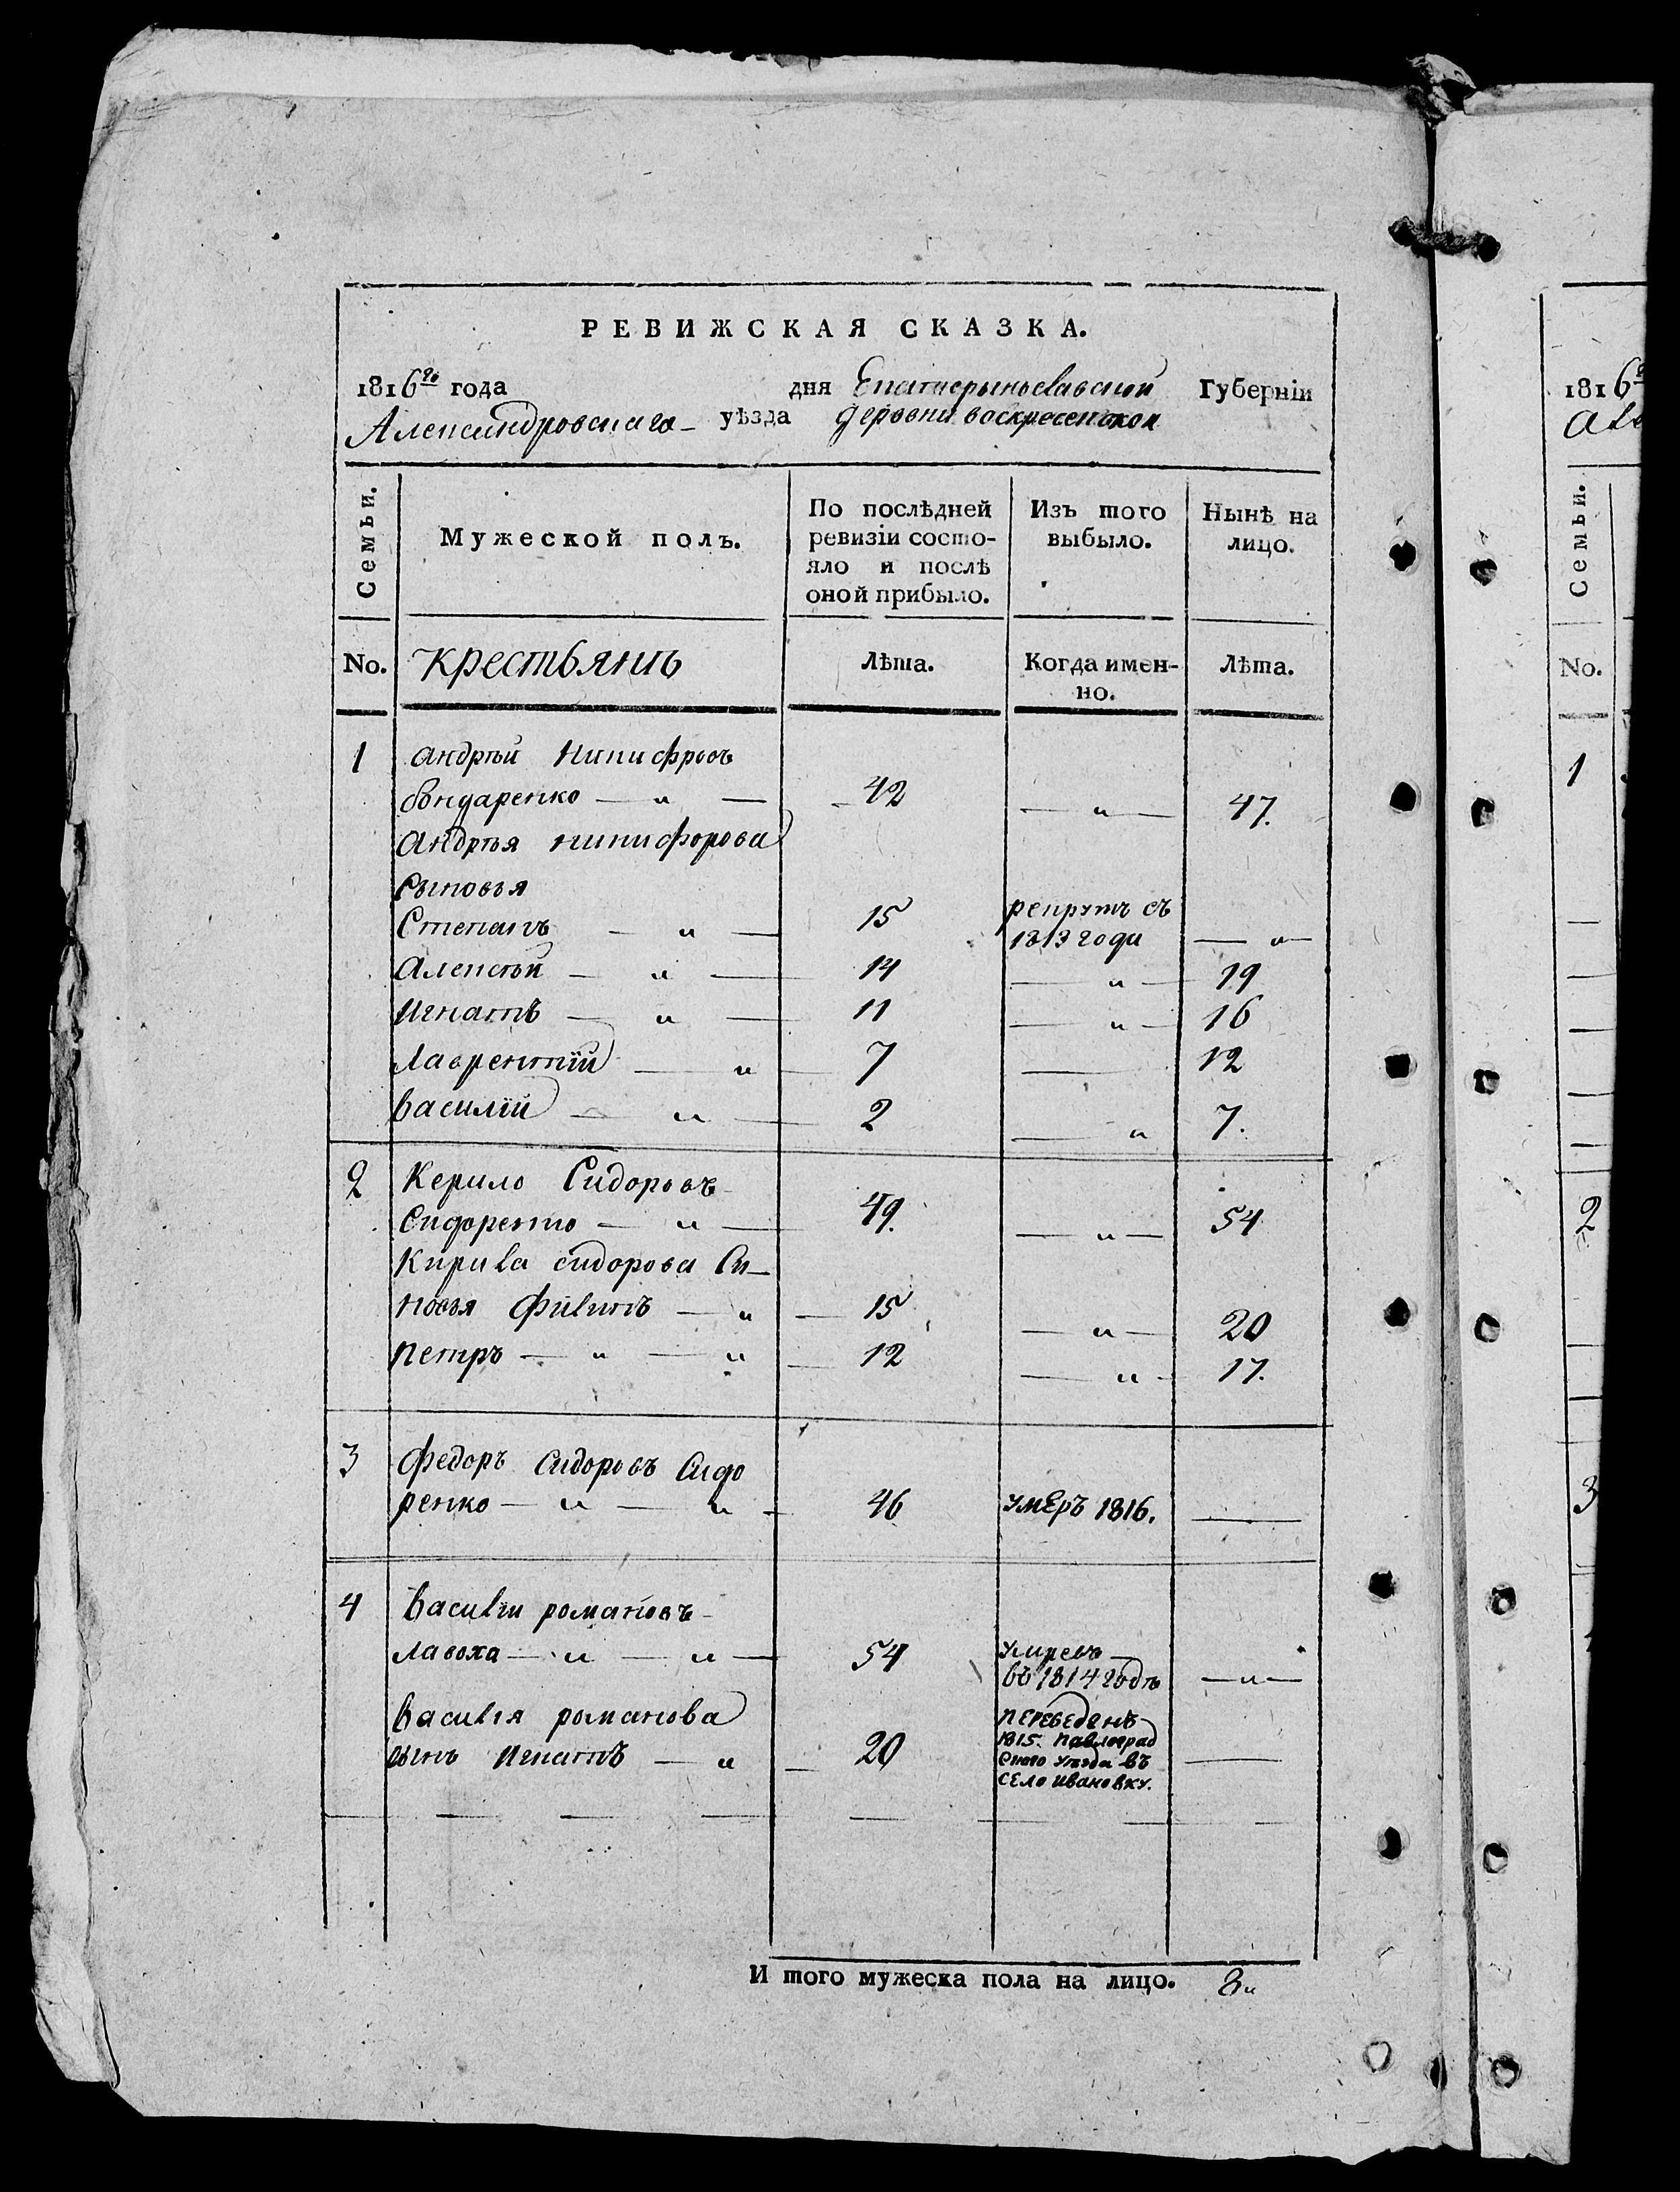 РЕВИЖСКАЯ СКАЗКА.
1816го года дня Екатерынославской Губерніи
Александровскаго уѣзда деровни воскресенской
Семьи.
Мужеской полъ.
По послѣдней ревизіи состо-
яло и послѣ
оной прибыло.
Изъ того
выбыло.
Нынѣ на
лицо.
No. крестьянъ Лѣта. Когда имен-
но. Лѣта.
1 андрѣй никифровъ
бондаренко — " — 42 — " — 47.
андрѣя никифорова
сыновья
Степанъ — " — 15 рекрутъ съ
1813 года — " —
алексѣй — " — 14 — " — 19
игнатъ — " — 11 — " — 16
лаврентій — " — 7 — 12
василій — " — 2 — " 7.
2 Керило Сидоровъ
Сидоренко — " — 49. — " — 54
Кирила сидорова Си-
новья филипъ — " — 15 — " — 20
петръ — " — " — 12 — " — 17.
3 федоръ сидоровъ сидо
ренко — " — " — 46 умеръ 1816. —
4 василіи романовъ
лавоха — " — " — 54 умре
въ 1814 годѣ — " —
василія романова
сынъ игнатъ — " — 20 переведенъ
1815. павлоград
ского уѣзда въ
село ивановку. —
И того мужеска пола на лицо. 8"
1816
Але
Семьи.
No.
1
2
3